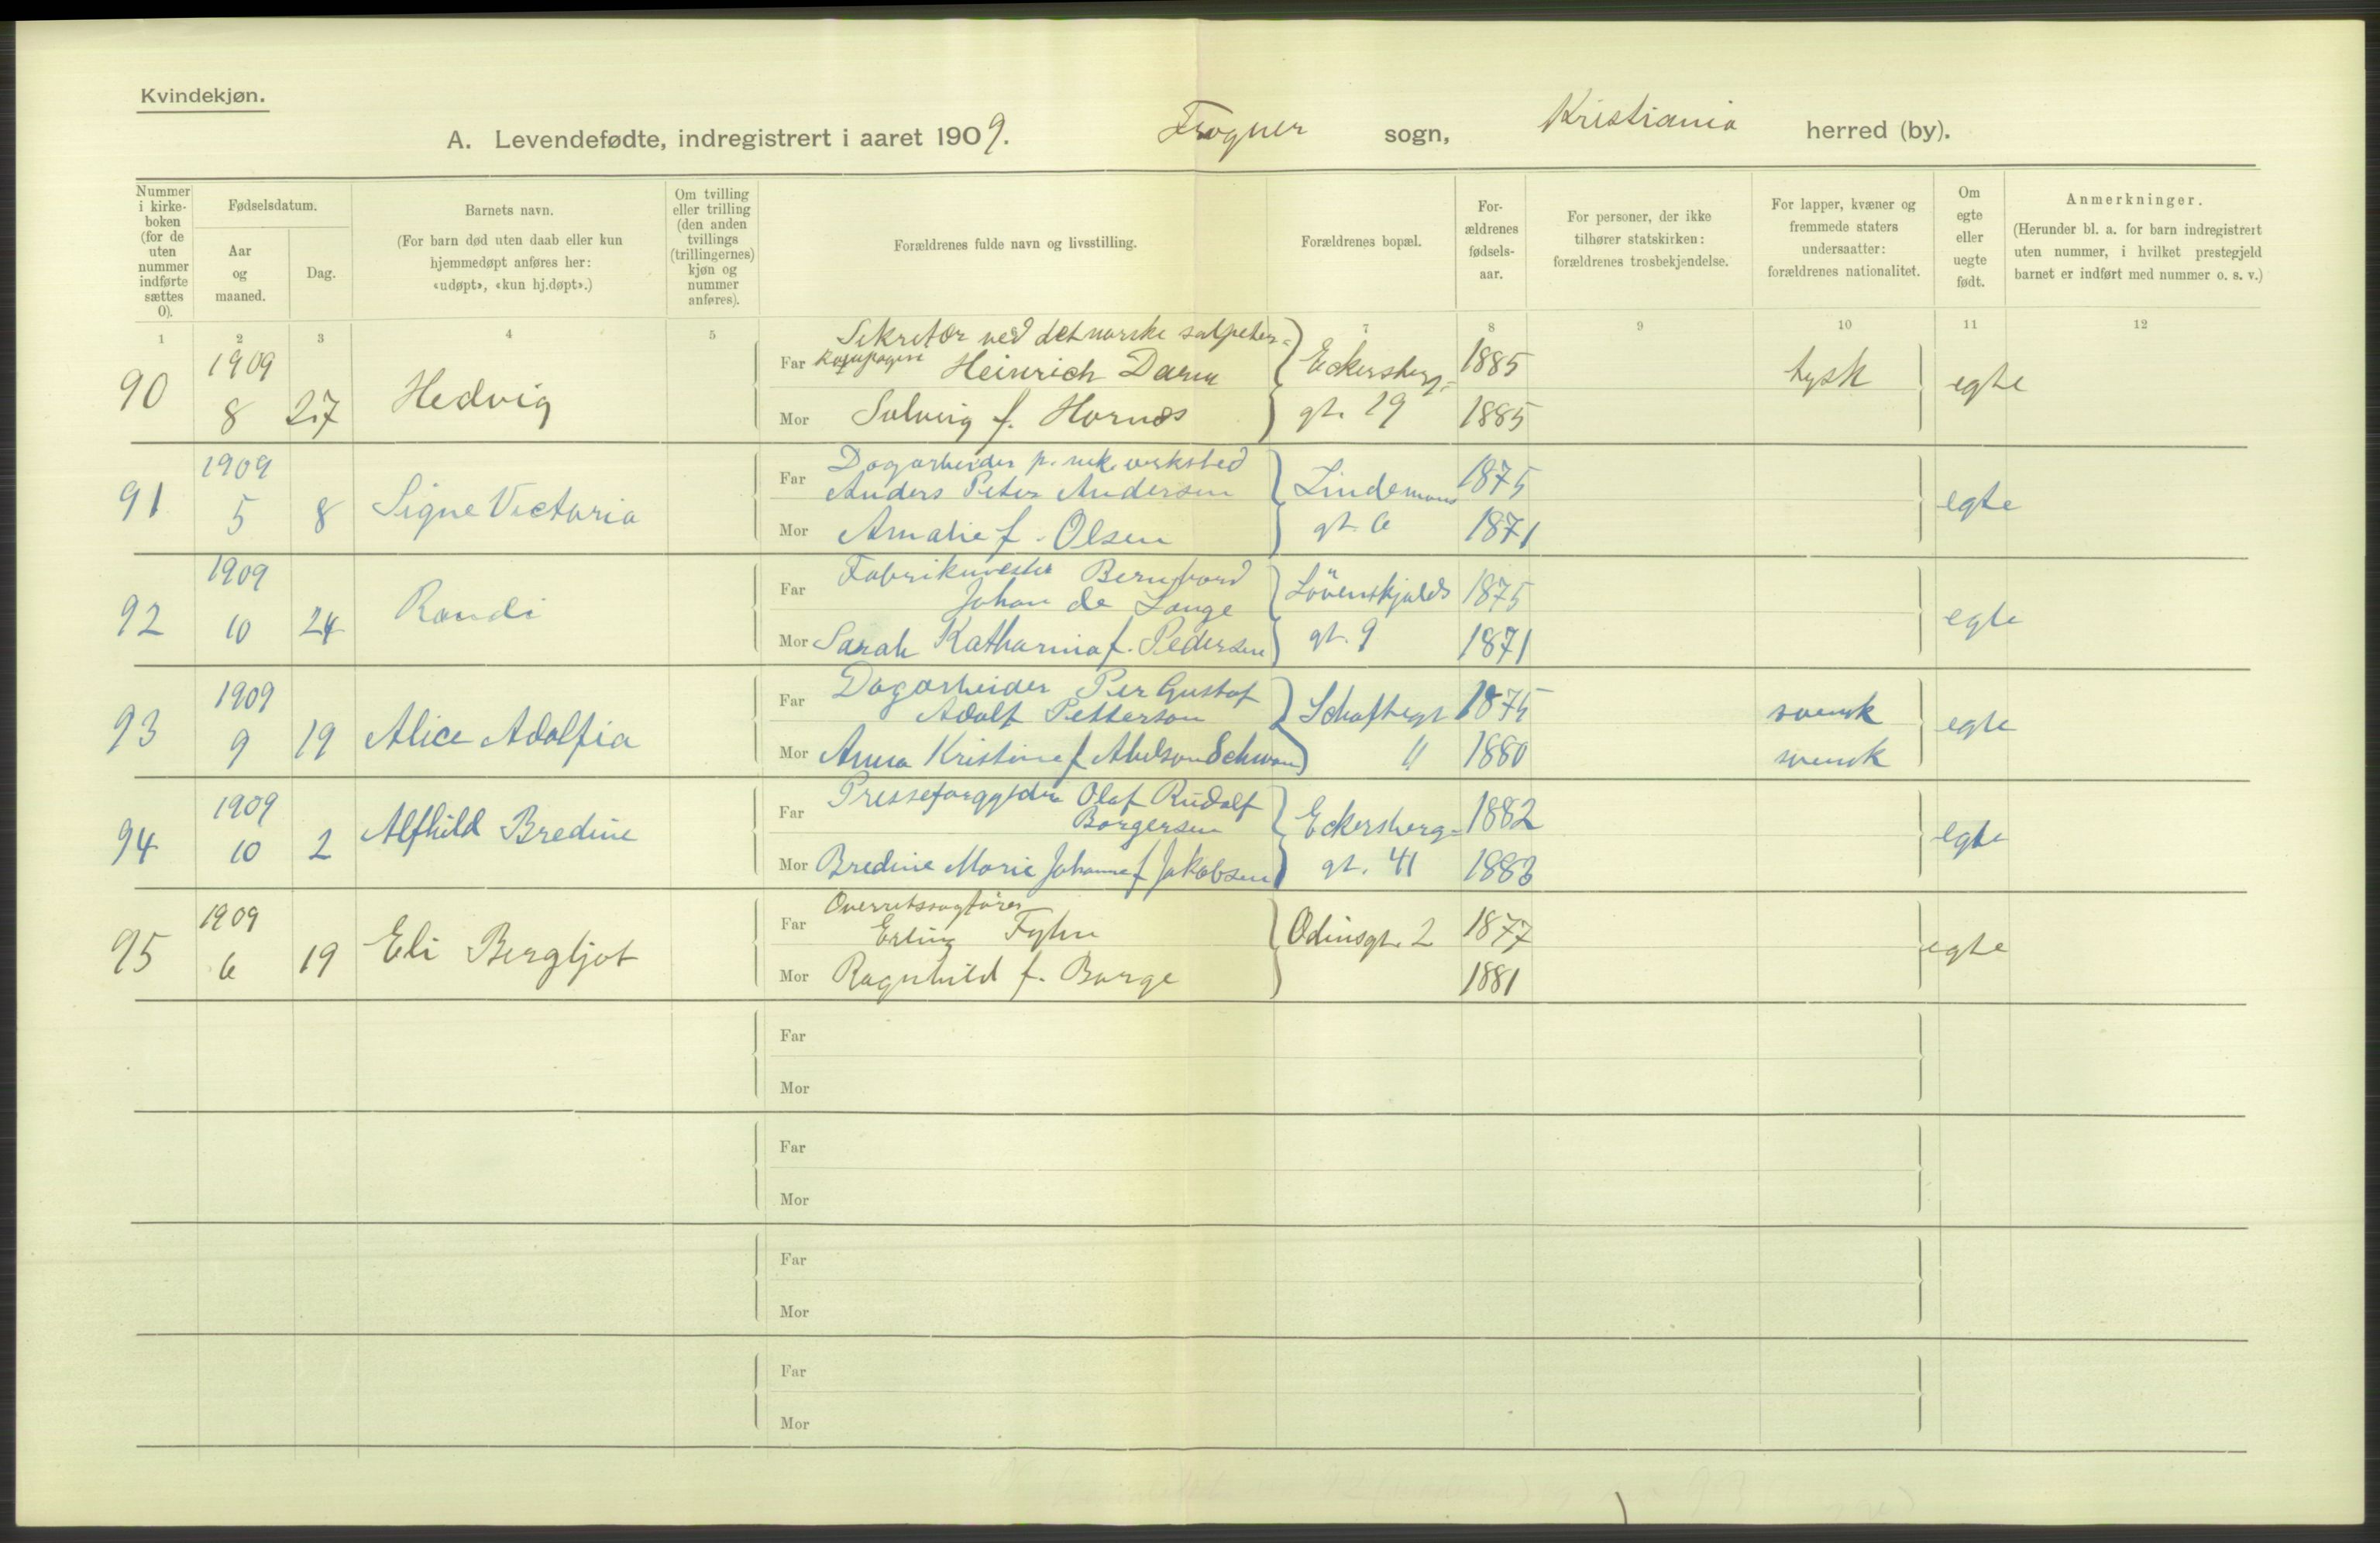 Kvindekjøn.
A. Levendefødte, indregistrert i aaret 1909. Frogner sogn, Kristiania herred (by).
Nummer i kirkeboken (for de uten nummer indførte sættes 0).
Fødselsdatum.
Aar og maaned.
Dag.
Barnets navn.
(For barn død uten daab eller kun hjemmedøpt anføres her: «udøpt», «kun hj.døpt».)
Om tvilling eller trilling (den anden tvillings (trillingernes) kjøn og nummer anføres).
Forældrenes fulde navn og livsstilling.
Forældrenes bopæl.
Forældrenes fødselsaar.
For personer, der ikke tilhører statskirken: forældrenes trosbekjendelse.
For lapper, kvæner og fremmede staters undersaatter: forældrenes nationalitet.
Om egte eller uegte født.
Anmerkninger.
(Herunder bl. a. for barn indregistrert uten nummer, i hvilket prestegjeld barnet er indført med nummer o. s. v.)
1 2 3 4 5 7 8 9 10 11 12
90 1909 8 27 Hedvig
Sekretær ved det norske salpeter-
Far kompagni Heinrich Eckersberg- 1885 tysk egte
Mor Solveig f. Hornæs gt. 19 1885
91 1909 5 8 Signe Victoria
Dagarbeider p. mek. verksted
Far Anders Peter Andersen Lindemans 1875 egte
Mor Amalie f. Olsen gt. 6 1871
92 1909 10 24 Randi
Far Fabrikmester Bernhard
Johan de Lange Lövenskjolds 1875 egte
Mor Sarah Katharina f. Pedersen gt. 9 1871
93 1909 9 19 Alice Adolfia
Far Dagarbeider Per Gustaf
Adolf Petterson Schaftegt 1875 svensk egte
Mor Anna Kristine f. 〃 1880 svensk
94 1909 10 2 Alfhild Bredine
Far Presseforgylder Olaf Rudolf
Borgersen Eckersberg- 1882 egte
Mor Bredine Marie Johanne f Jakobsen gt. 41 1883
95 1909 6 19 Eli Bergljot
Overretssagfører
Far Erling Fyhn Odinsgt. 2 1877 egte
Mor Ragnhild f. Borge 1881
Far
Mor
Far
Mor
Far
Mor
Far
Mor